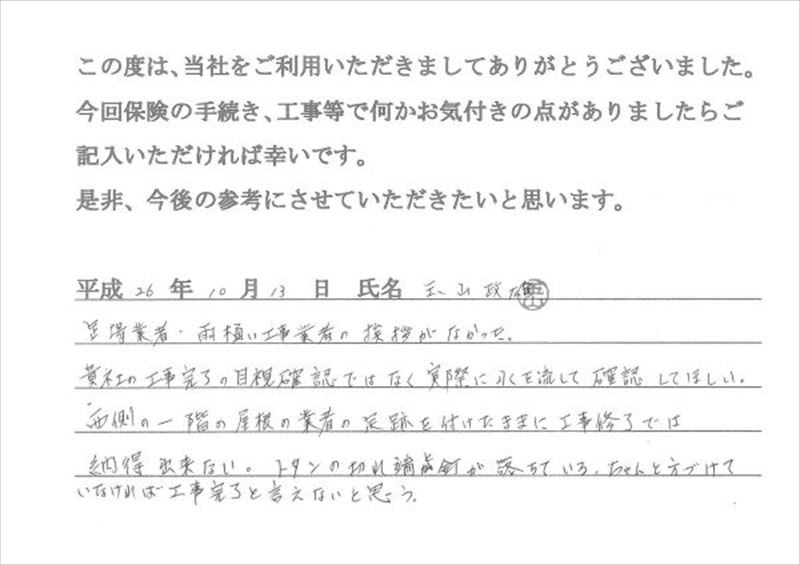 この度は、当社をご利用いただきましてありがとうございました。
今回保険の手続き、工事等で何かお気付きの点がありましたらご
記入いただければ幸いです。
是非、今後の参考にさせていただきたいと思います。
平成 26 年 10 月 13 日 氏名 玉山政雄
足場業者・雨樋い工事業者の挨拶がなかった。
貴社の工事完了の目視確認ではなく実際に水を流して確認してほしい。
西側の一階の屋根の業者の足跡を付けたままに工事修了では
納得出来ない。トタンの切れ端、釘が落ちている。ちゃんと方づけて
いなければ工事完了と言えないと思う。